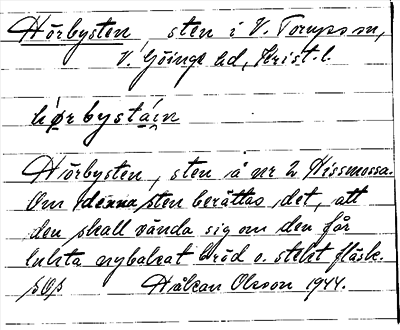 Hörbysten, sten i V. Torups sn,
V. Göinge hd, Krist. l.
hørbystain
Hörbysten, sten å nr 2 Hissmossa.
Om denna sten berättas det, att
den skall vända sig om den får
lukta nybakat bröd o. stekt fläsk.
Håkan Olsson 1944.